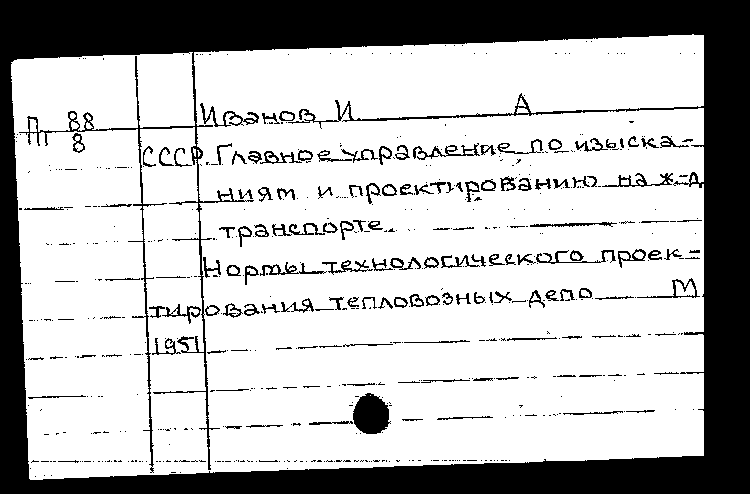 Пт 88/8
Иванов, И. А
СССР. Главное управление по изыска-
ниям и проектированию на ж.-д
транспорте.
Нормы технологического проек-
тирования тепловозных депо М
1951